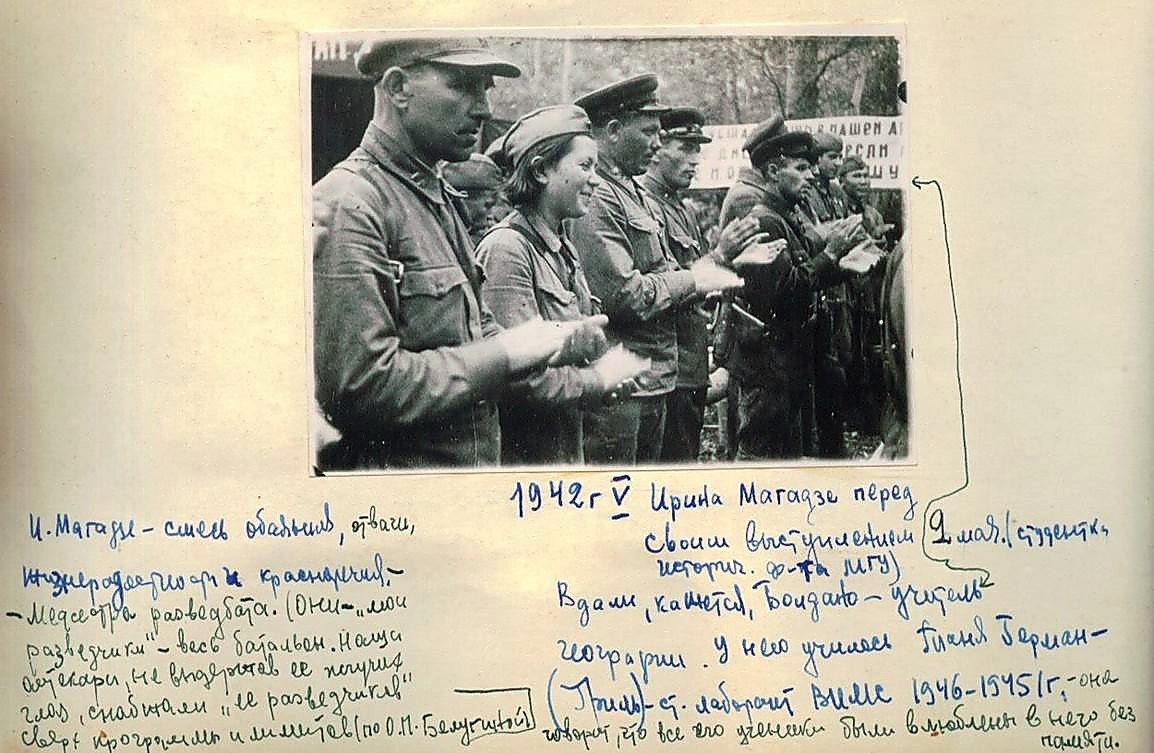 АШЕЙ
В НАШЕМ
ЕСЛИ
ШУ
1942 г V Ирина Магадзе перед
своим выступлением 9 мая. (студентка
историч. ф-та МГУ)
Вдали, кажется, Богдано - учитель
географии. У него училась Таня Герман-
(Гриль) - ст. лаборант ВИМС 1946-1945/г, - она
говорит, что все его ученики были влюблены в него без
памяти.
И. Магадзе - смесь обаяния, отваги,
жизнерадостности и красноречия, -
- Медсестра разведбата. (Они - "мои
разведчики" - весь батальон. Наши
аптекари, не выдержав ее жгучих
глаз, снабжали "ее разведчиков"
сверх программы и лимитов (по О.П. Белугиной)